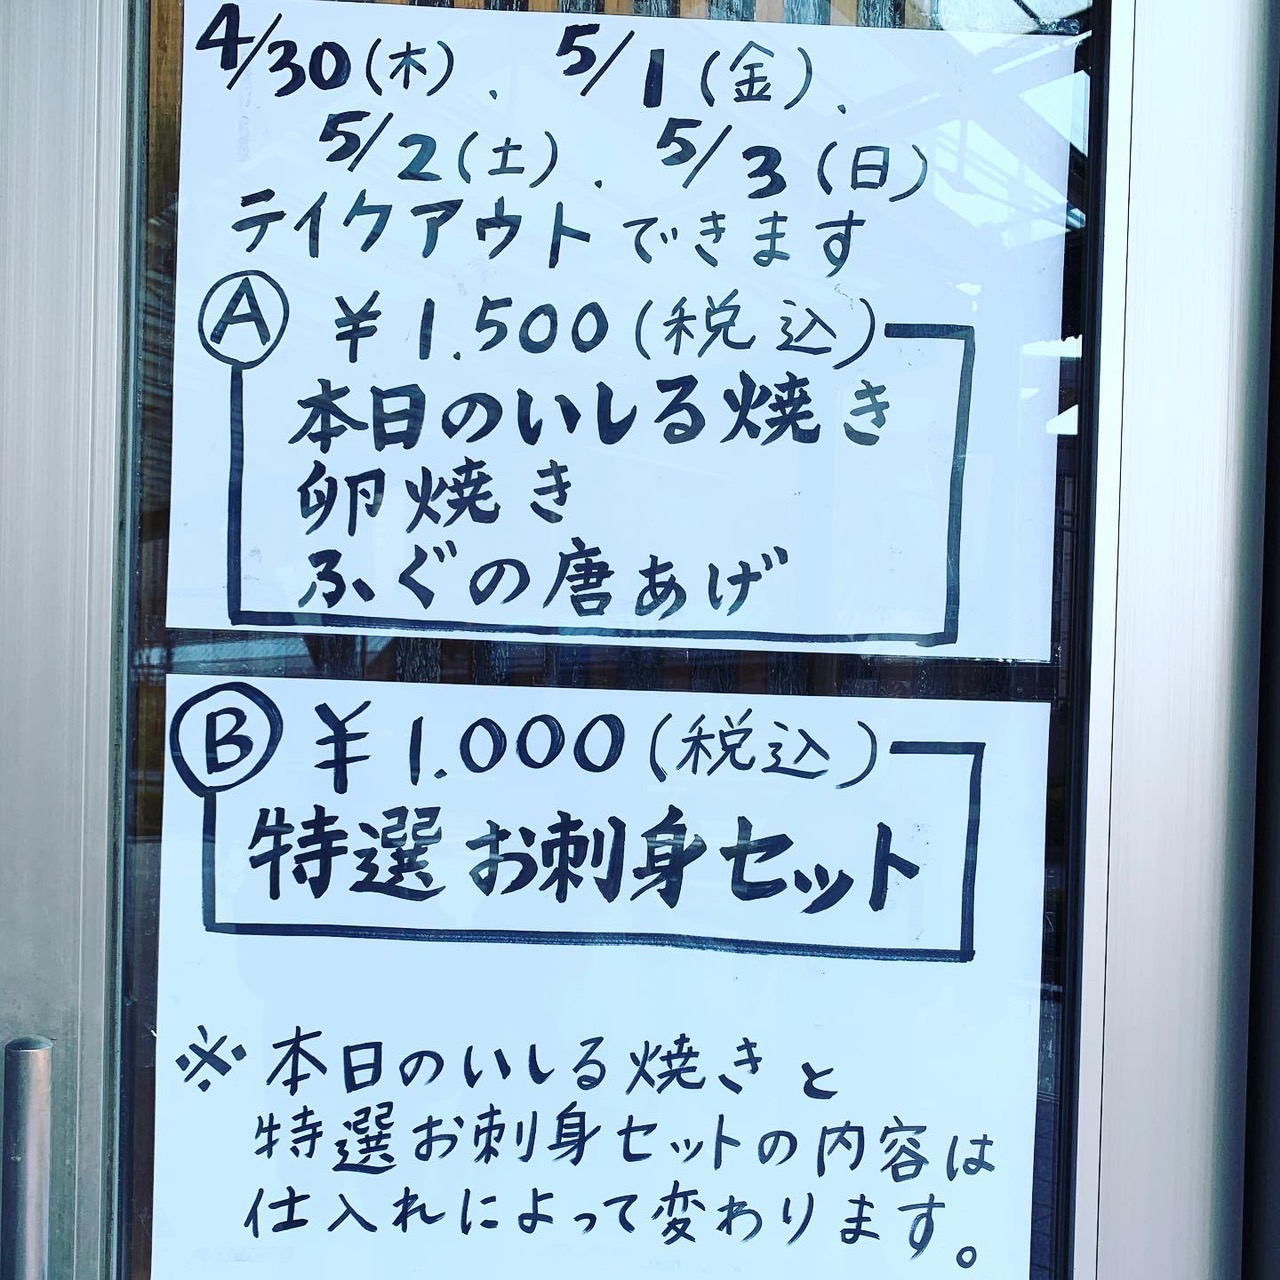 4/30(木)、5/1(金)、
5/2(土)、5/3(日)
テイクアウトできます
Ⓐ ¥1.500(税込)
本日のいしる焼き
卵焼き
ふぐの唐あげ
Ⓑ ¥1.000(税込)
特選お刺身セット
※本日のいしる焼きと
特選お刺身セットの内容は
仕入れによって変わります。